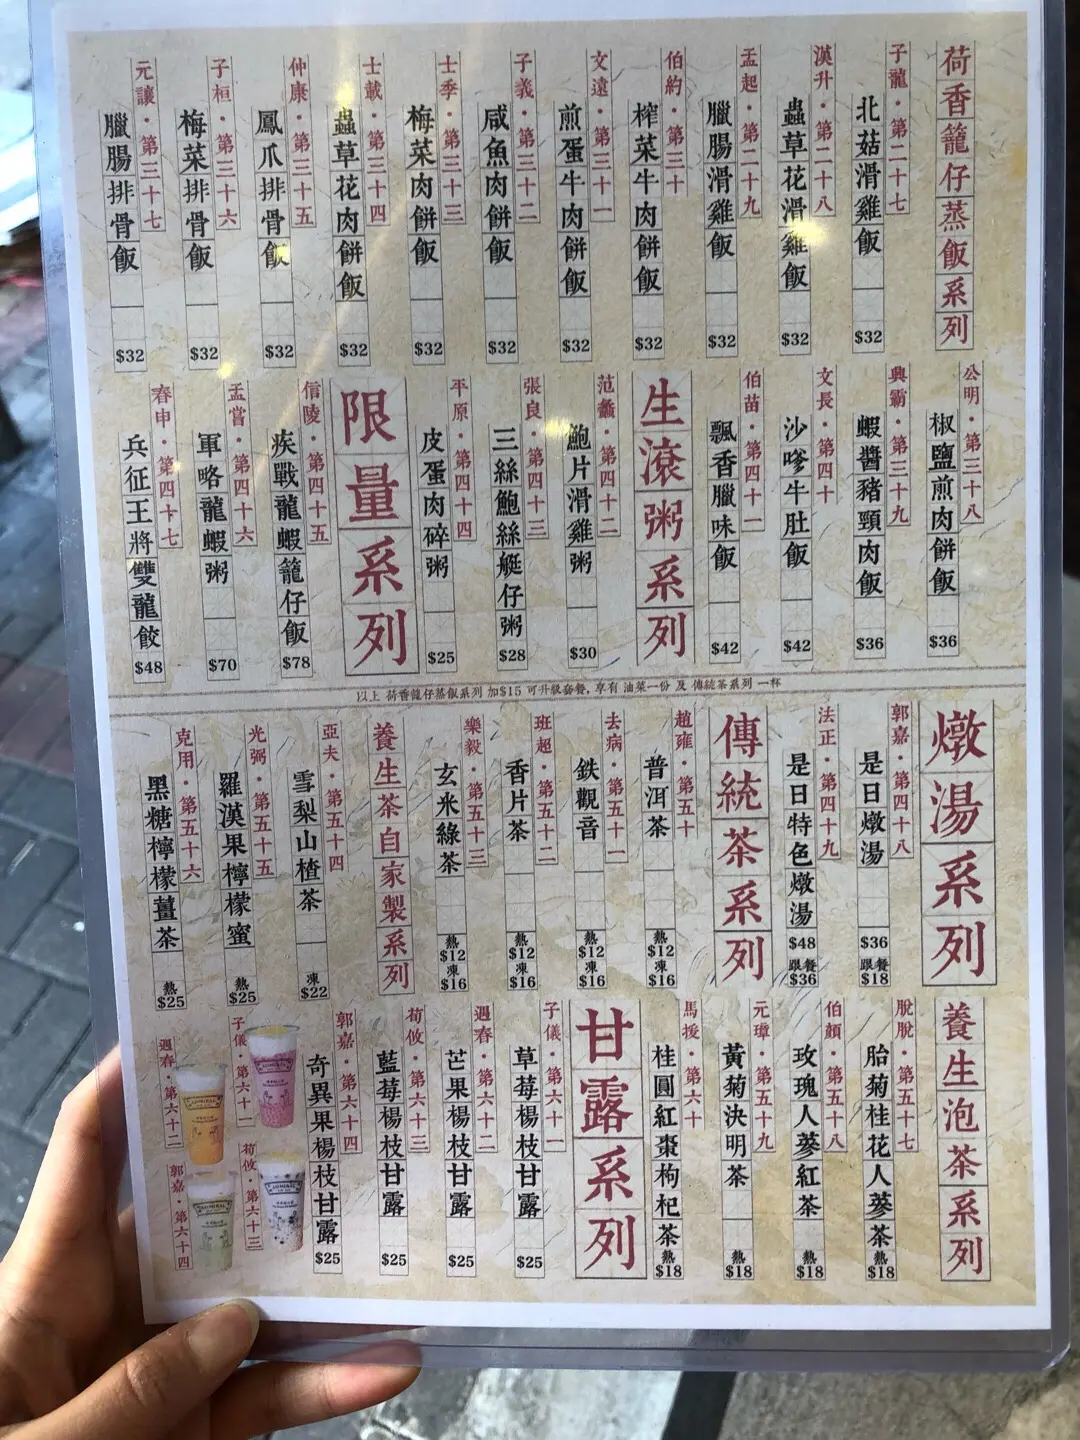 荷香籠仔蒸飯系列
子龍·第二十七
北菇滑雞飯 $32
漢升·第二十八
蟲草花滑雞飯 $32
孟起·第二十九
臘腸滑雞飯 $32
伯約·第三十
榨菜牛肉餅飯 $32
文遠·第三十一
煎蛋牛肉餅飯 $32
子義·第三十二
咸魚肉餅飯 $32
士季·第三十三
梅菜肉餅飯 $32
士載·第三十四
蟲草花肉餅飯 $32
仲康·第三十五
鳳爪排骨飯 $32
子桓·第三十六
梅菜排骨飯 $32
元讓·第三十七
臘腸排骨飯 $32
公明·第三十八
椒鹽煎肉餅飯 $36
興霸·第三十九
蝦醬豬頸肉飯 $36
文長·第四十
沙嗲牛肚飯 $42
伯苗·第四十一
飄香臘味飯 $42
生滾粥系列
范蠡·第四十二
鮑片滑雞粥 $30
張良·第四十三
三絲鮑絲艇仔粥 $28
平原·第四十四
皮蛋肉碎粥 $25
限量系列
信陵·第四十五
疾戰龍蝦籠仔飯 $78
孟嘗·第四十六
軍略龍蝦粥 $70
春申·第四十七
兵征王將雙龍餃 $48
以上 荷香籠仔蒸飯系列 加$15 可升級套餐, 享有 油菜一份 及 傳統茶系列 一杯
燉湯系列
郭嘉·第四十八
是日燉湯 $36 跟餐 $18
法正·第四十九
是日特色燉湯 $48 跟餐 $36
傳統茶系列
趙雍·第五十
普洱茶 熱 $12 凍 $16
去病·第五十一
鉄觀音 熱 $12 凍 $16
班超·第五十二
香片茶 熱 $12 凍 $16
樂毅·第五十三
玄米綠茶 熱 $12 凍 $16
養生茶自家製系列
亞夫·第五十四
雪梨山楂茶 凍 $22
光弼·第五十五
羅漢果檸檬蜜 熱 $25
克用·第五十六
黑糖檸檬薑茶 熱 $25
養生泡茶系列
脫脫·第五十七
胎菊桂花人蔘茶 熱 $18
伯顏·第五十八
玫瑰人蔘紅茶 熱 $18
元璋·第五十九
黃菊決明茶 熱 $18
馬援·第六十
桂圓紅棗枸杞茶 熱 $18
甘露系列
子儀·第六十一
草莓楊枝甘露 $25
遇春·第六十二
芒果楊枝甘露 $25
荀攸·第六十三
藍莓楊枝甘露 $25
郭嘉·第六十四
奇異果楊枝甘露 $25
子儀·第六十一
荀攸·第六十三
遇春·第六十二
郭嘉·第六十四